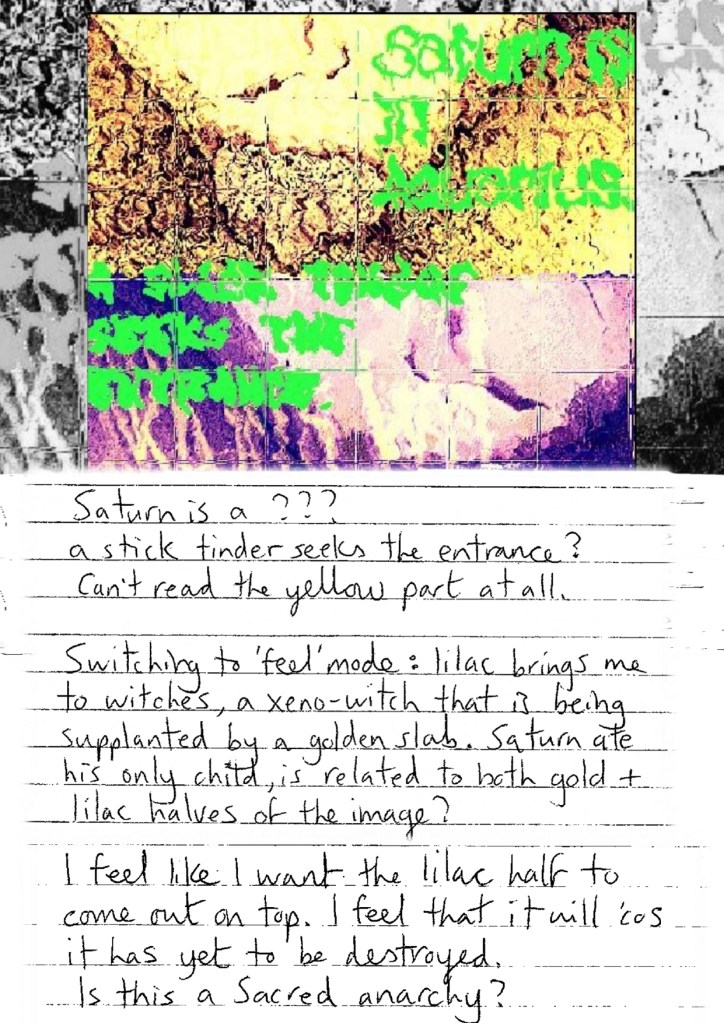 Saturn is
in
Aquarius.
SEEKS THE
ENTRANCE.
Saturn is a ???
a stick tinder seeks the entrance?
Can't read the yellow part at all.
Switching to 'feel' mode: lilac brings me
to witches, a xeno-witch that is being
supplanted by a golden slab. Saturn ate
his only child, is related to both gold +
lilac halves of the image?
I feel like I want the lilac half to
come out on top. I feel that it will 'cos
it has yet to be destroyed.
Is this a Sacred anarchy?